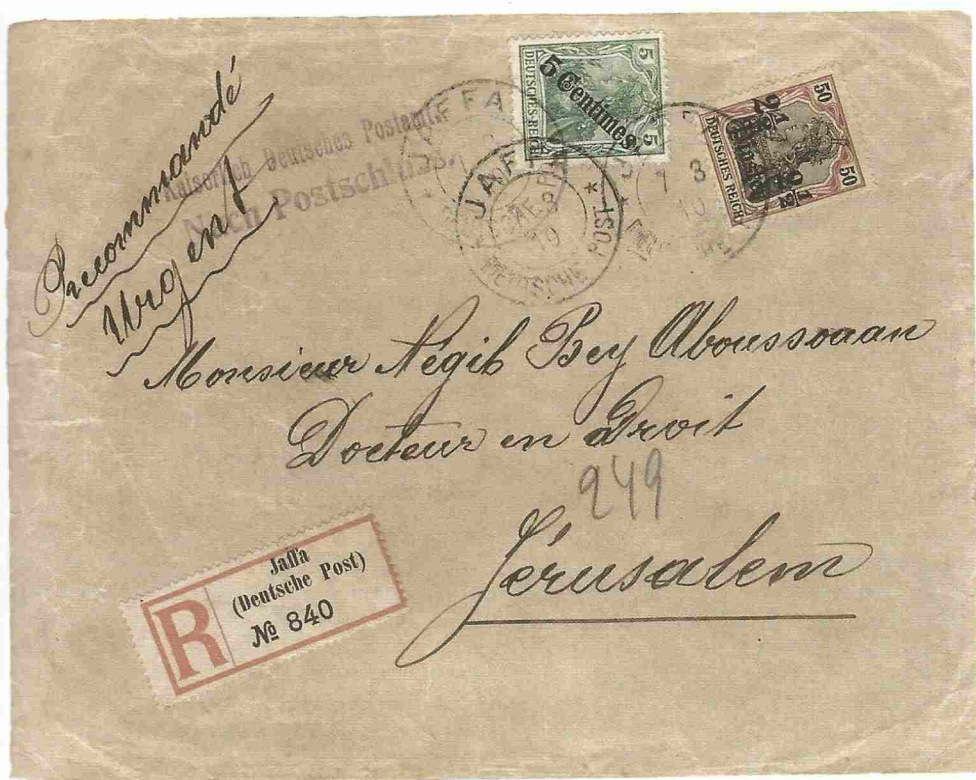 Recommandé
Urgent
Kaiserlich Deutsches Postamt.
Nach Postschluss.
JAFFA
JAFFA
DEUTSCHE POST
5 5
DEUTSCHES REICH
5 Centimes
50 50
DEUTSCHES REICH
Monsieur Négib Bey Aboussouaan
Docteur en Droit
249
Jérusalem
R
Jaffa
(Deutsche Post)
№ 840